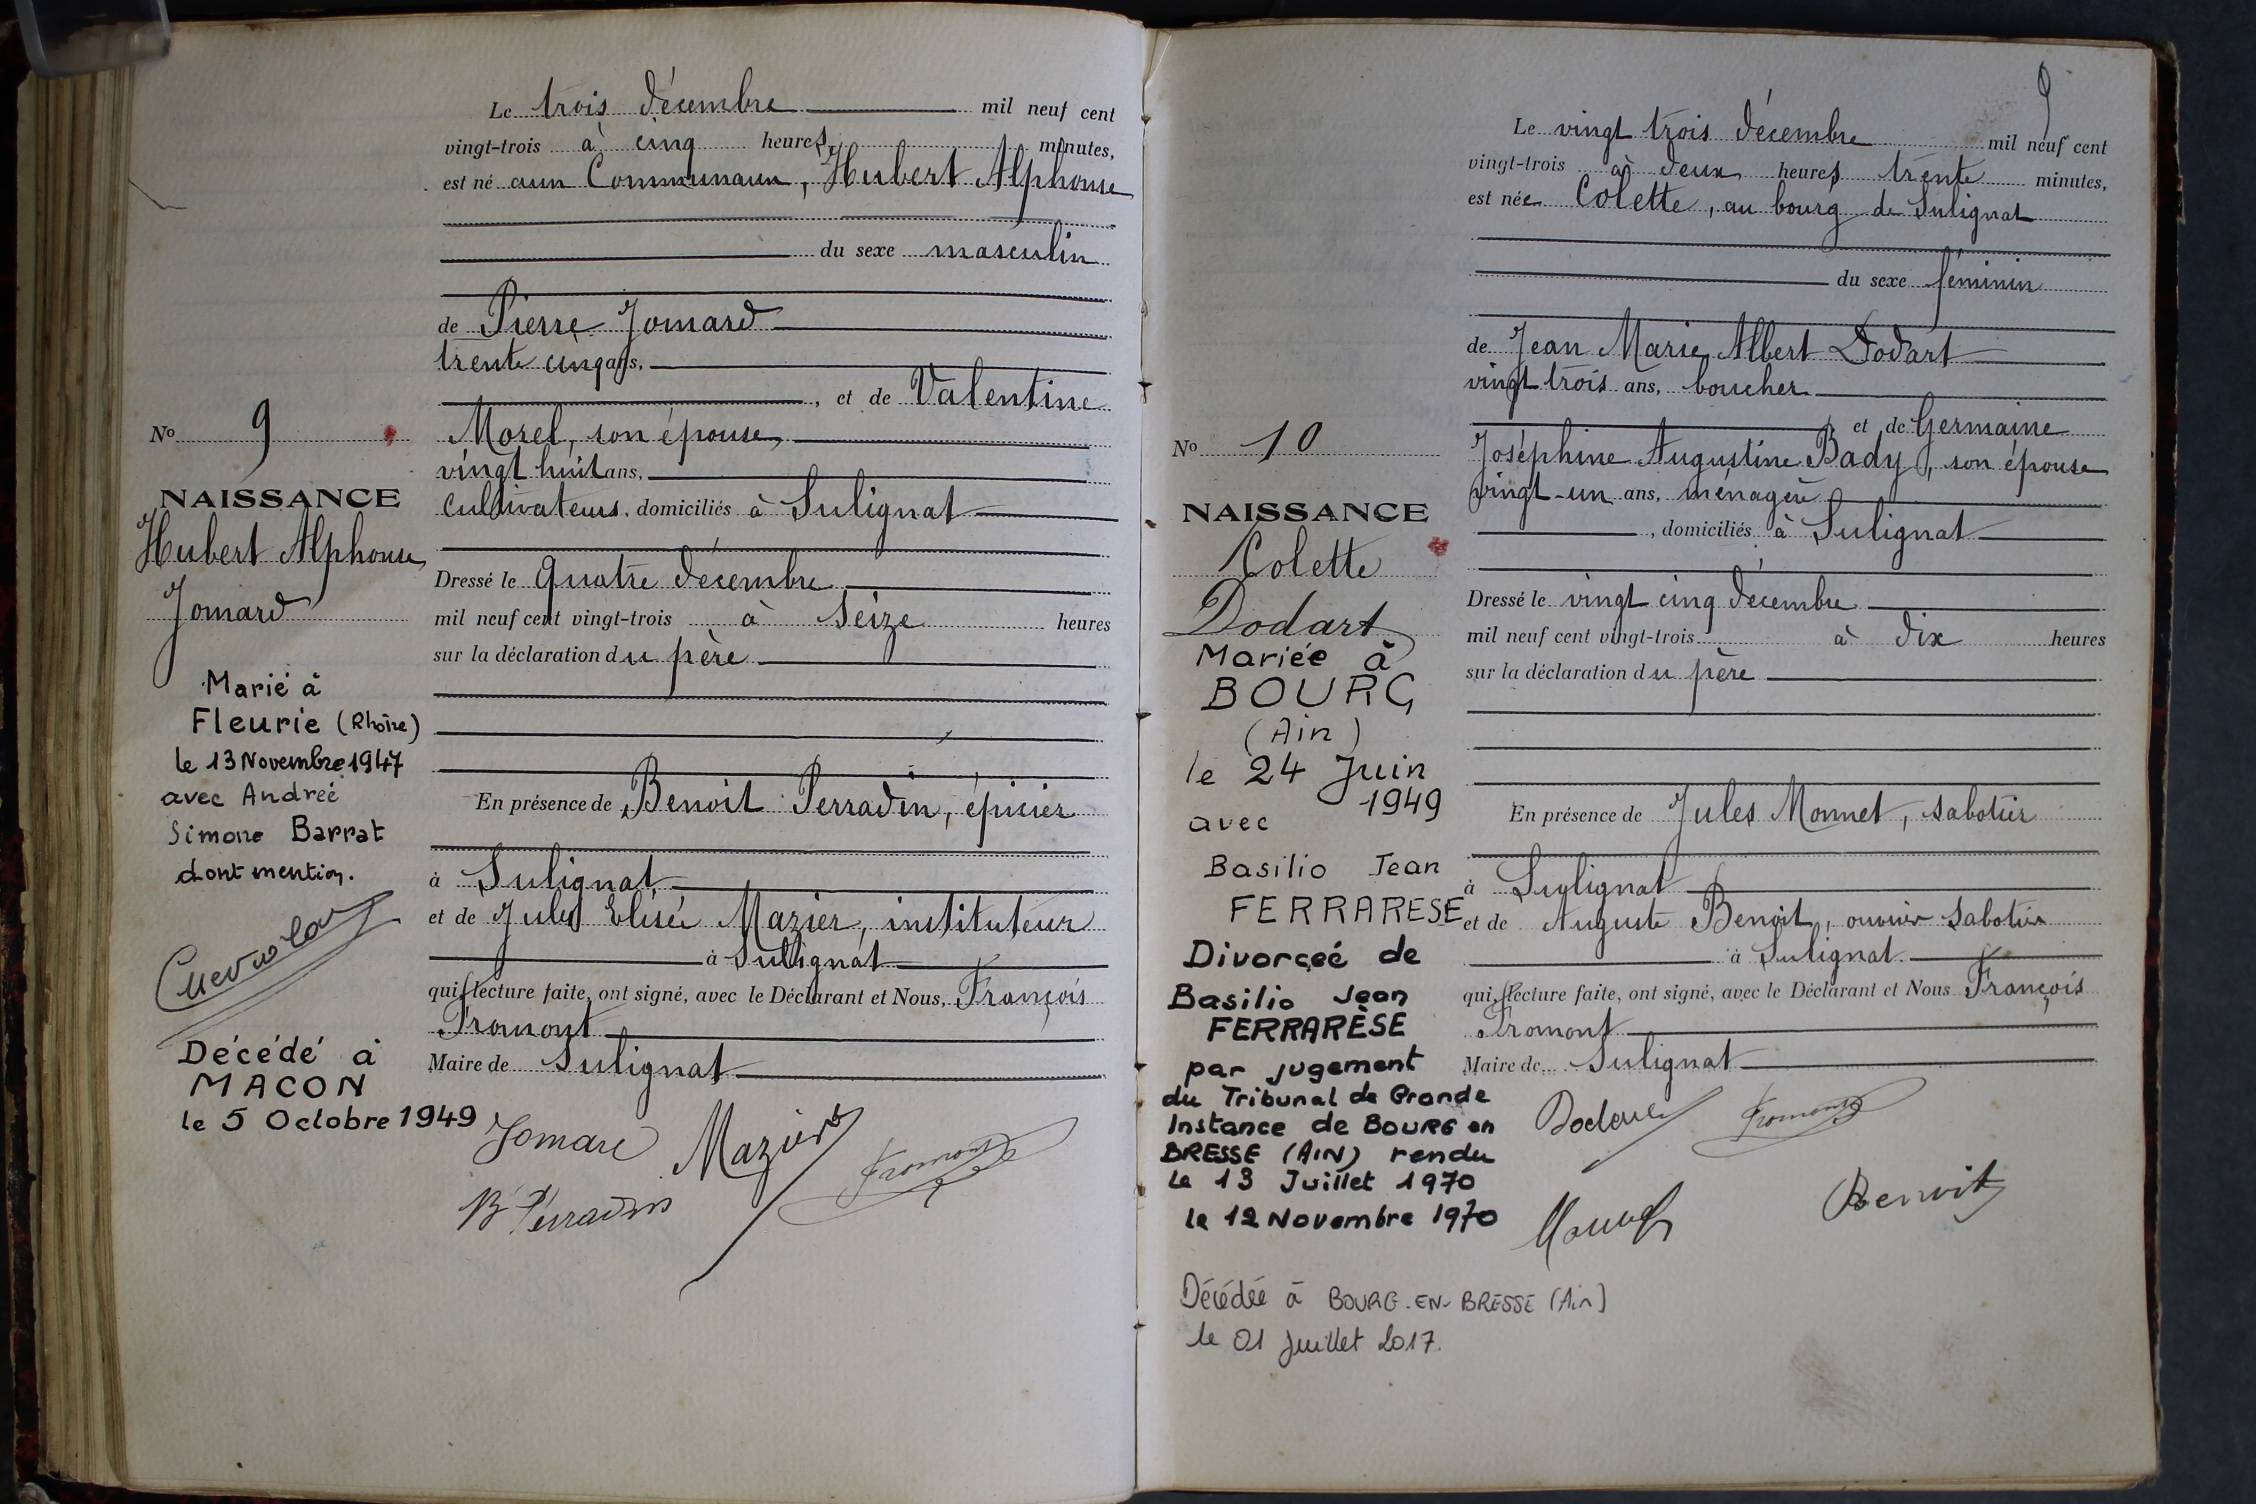 Le trois décembre mil neuf cent
vingt-trois à cinq heures, minutes,
est né aux Communaux, Hubert Alphonse
du sexe masculin
de Pierre Jomard
trente cinq ans,
, et de Valentine
Morel, son épouse,
vingt huit ans,
cultivateurs, domiciliés à Sulignat
Dressé le quatre décembre
mil neuf cent vingt-trois à seize heures
sur la déclaration du père
En présence de Benoit Perradin, épicier
à Sulignat
et de Jules Elisée Mazier, instituteur
à Sulignat
qui, lecture faite, ont signé, avec le Déclarant et Nous, François
Fromont
Maire de Sulignat
Jomard Mazier Fromont
B Perradin
No 9
NAISSANCE
Hubert Alphonse
Jomard
Marié à
Fleurie (Rhône)
le 13 Novembre 1947
avec Andreé
Simone Barrat
dont mention.
Décédé à
MACON
le 5 Octobre 1949
9
Le vingt trois décembre mil neuf cent
vingt-trois à deux heures trente minutes,
est née Colette, au bourg de Sulignat
du sexe féminin
de Jean Marie Albert Dodart
vingt trois ans, boucher
et de Germaine
Joséphine Augustine Bady, son épouse
vingt-un ans, ménagère
, domiciliés à Sulignat
Dressé le vingt cinq décembre
mil neuf cent vingt-trois à dix heures
sur la déclaration du père
En présence de Jules Monnet, sabotier
à Sulignat
et de Auguste Benoit, ouvrier sabotier
à Sulignat
qui, lecture faite, ont signé, avec le Déclarant et Nous François
Fromont
Maire de Sulignat
Fromont
Benoit
No 10
NAISSANCE
Colette
Dodart
Mariée à
BOURG
(Ain)
le 24 Juin
1949
avec
Basilio Jean
FERRARESE
Divorceé de
Basilio Jean
FERRARÈSE
par jugement
du Tribunal de Grande
Instance de BOURG en
BRESSE (AIN) rendu
le 13 Juillet 1970
le 12 Novembre 1970
Décédée à BOURG-EN-BRESSE (Ain)
le 01 Juillet 2017.